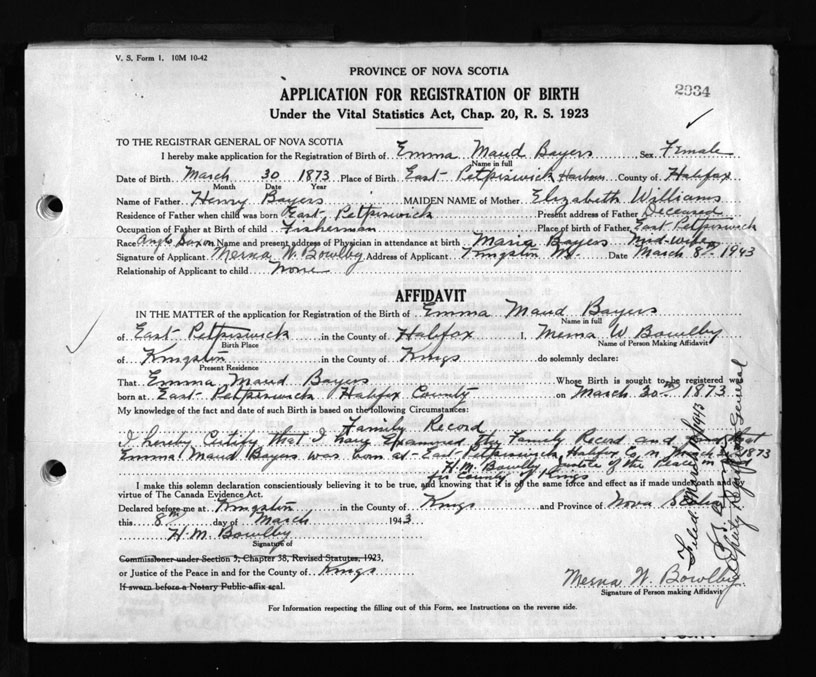 V. S. Form 1. 10M 10-42
PROVINCE OF NOVA SCOTIA
2934
APPLICATION FOR REGISTRATION OF BIRTH
Under the Vital Statistics Act, Chap. 20, R. S. 1923
TO THE REGISTRAR GENERAL OF NOVA SCOTIA
I hereby make application for the Registration of Birth of Emma Maud Bayers Sex Female
Name in full
Date of Birth March 30 1873 Place of Birth East Petpiswick Harbour County of Halifax
Month Date Year
Name of Father Henry Bayers MAIDEN NAME of Mother Elizabeth Williams
Residence of Father when child was born East Petpiswick Present address of Father Deceased
Occupation of Father at Birth of child Fisherman Place of birth of Father East Petpiswick
Race Anglo Saxon Name and present address of Physician in attendance at birth Maria Bayers Mid-wife
Signature of Applicant Merna W. Bowlby Address of Applicant Kingston N.S. Date March 8th 1943
Relationship of Applicant to child None
AFFIDAVIT
IN THE MATTER of the application for Registration of the Birth of Emma Maud Bayers
Name in full
of East Petpiswick in the County of Halifax I, Merna W Bowlby
Birth Place Name of Person Making Affidavit
of Kingston in the County of Kings do solemnly declare:
Present Residence
That Emma Maud Bayers Whose Birth is sought to be registered was
born at East Petpiswick Halifax County on March 30th 1873
My knowledge of the fact and date of such Birth is based on the following Circumstances:
Family Record
I hereby Certify that I have Examined the Family Record and that
Emma Maud Bayers was born at East Petpiswick Halifax Co. on March 30 1873
H. M. Bowlby Justice of the Peace in
for County of Kings
I make this solemn declaration conscientiously believing it to be true, and knowing that it is of the same force and effect as if made under oath and by
virtue of The Canada Evidence Act.
Declared before me at Kingston in the County of Kings and Province of Nova Scotia
this 8th day of March 1943
H. M. Bowlby
Signature of
Commissioner under Section 3, Chapter 38, Revised Statutes, 1923,
or Justice of the Peace in and for the County of Kings
If sworn before a Notary Public affix seal.
Merna W. Bowlby
Signature of Person making Affidavit
For Information respecting the filling out of this Form, see Instructions on the reverse side.
Filed March 1943
Deputy Registrar General